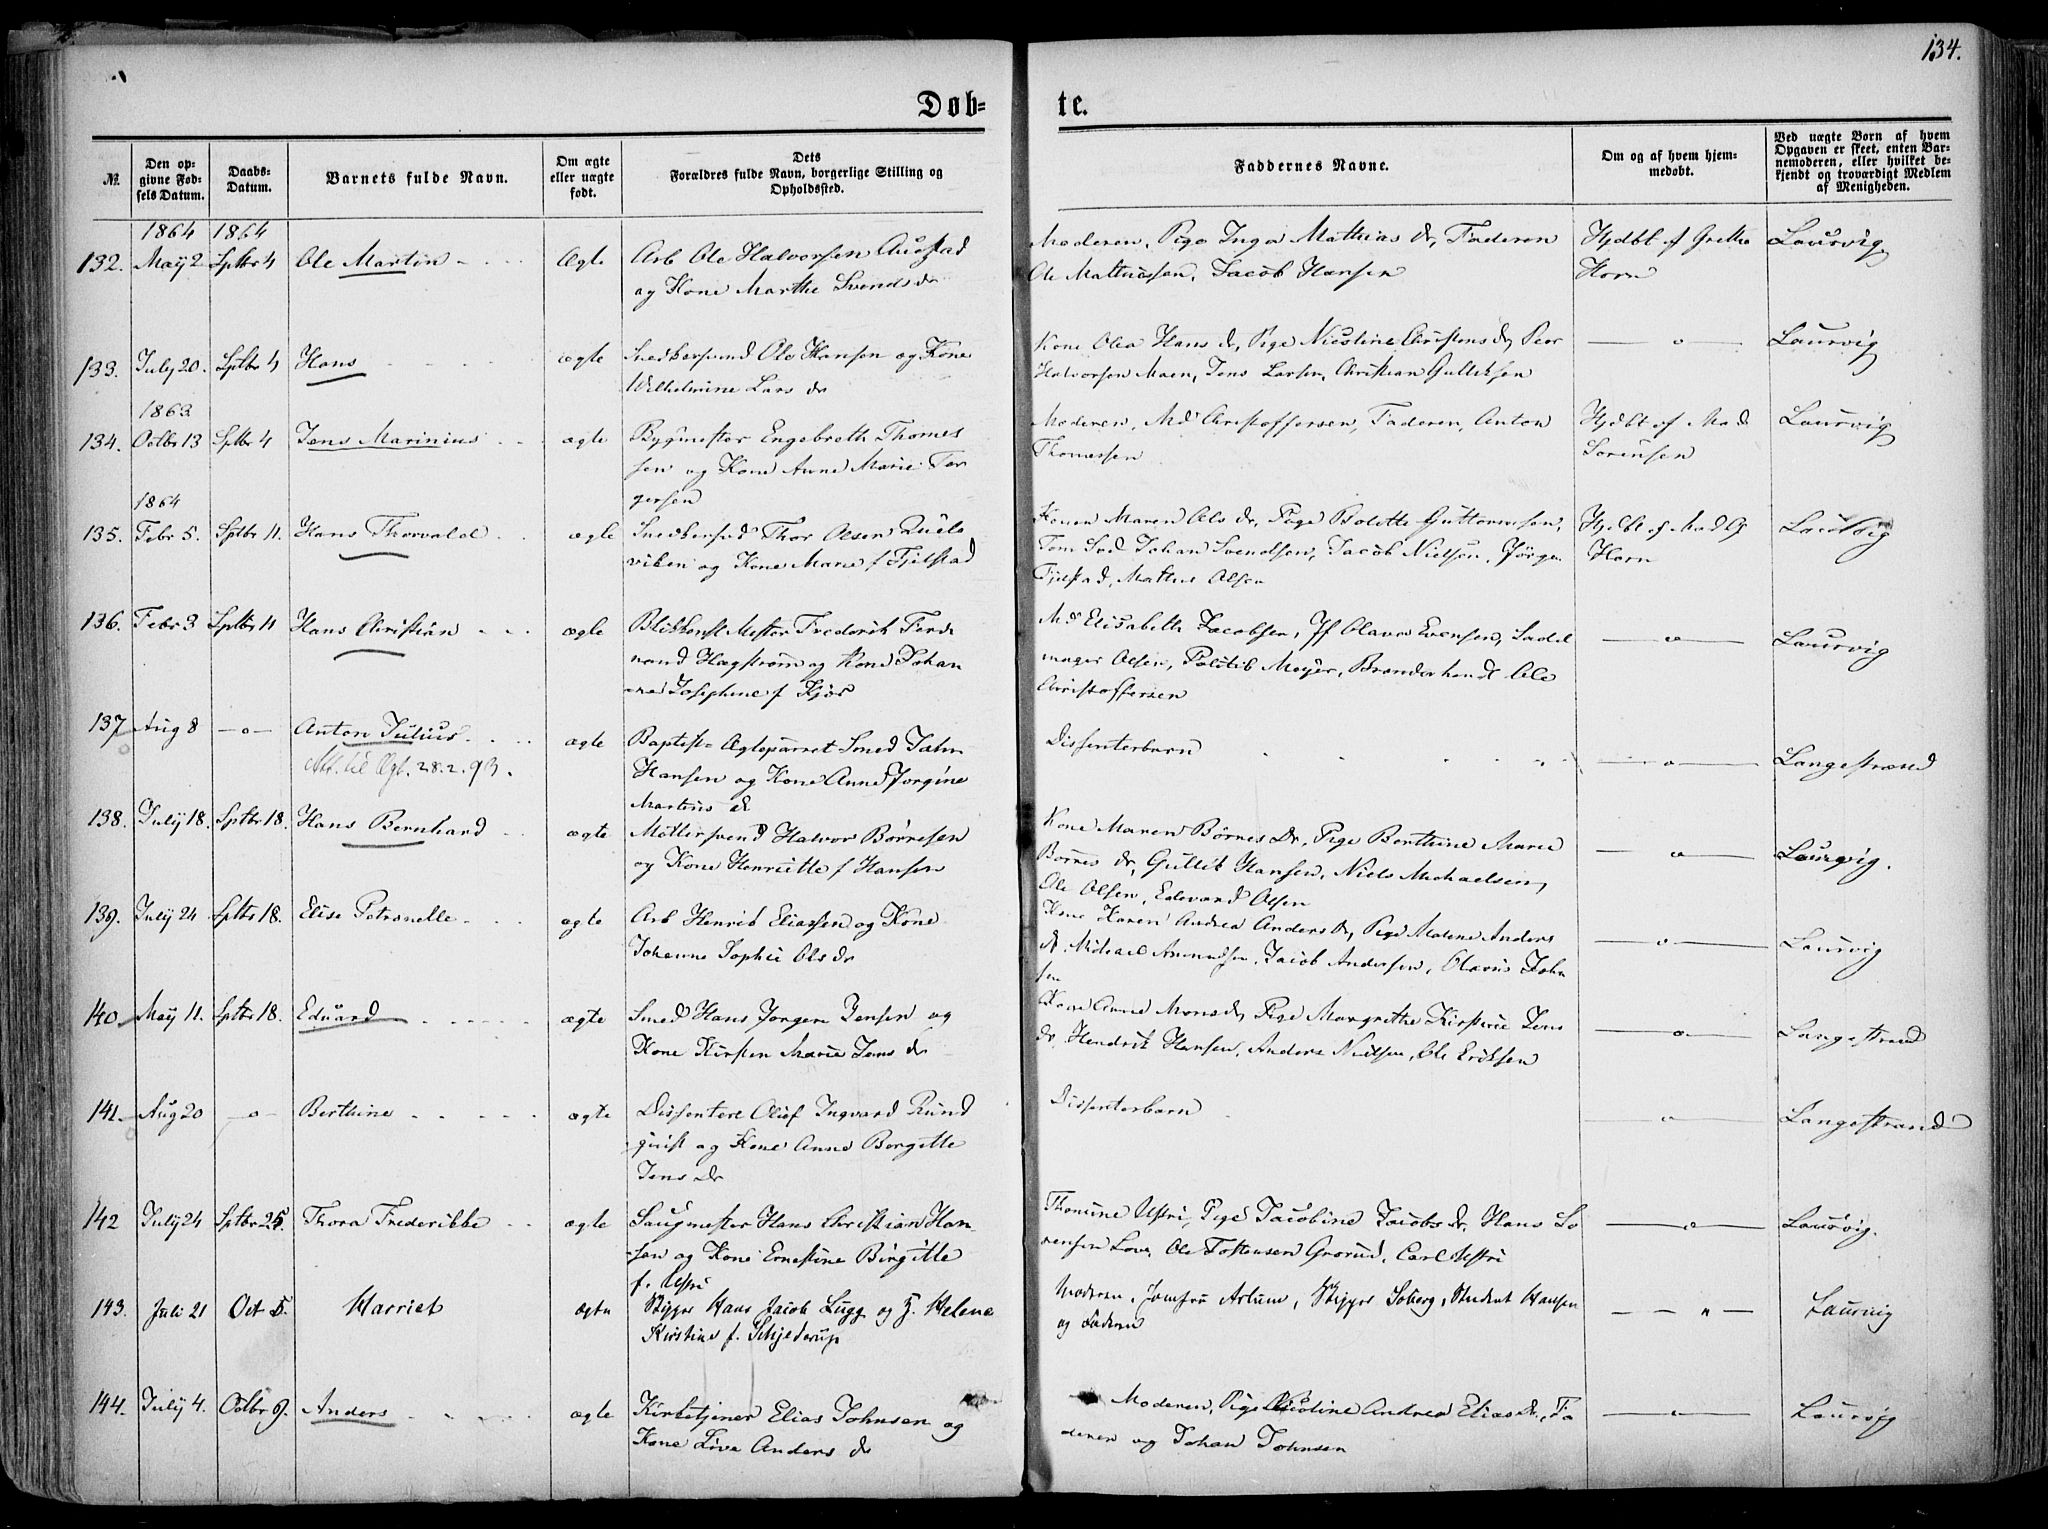 134.
Døb=
te.
№.
Den op=
givne Fød=
sels Datum.
Daabs=
Datum.
Barnets fulde Navn.
Om ægte
eller uægte
født.
Dets
Forældres fulde Navn, borgerlige Stilling og
Opholdssted.
Faddernes Navne.
Om og af hvem hjem=
medøbt.
Ved uægte Børn af hvem
Opgaven er skeet, enten Bar=
nemoderen, eller hvilket be=
kjendt og troværdigt Medlem
af Menigheden.
1864 1864
132. Maÿ 2 Sptbr 4 Ole Martin Ægte Arb Ole Halvorsen Austad
og Kone Marthe Svends dr
Moderen, Pige Inga Mathias dr, Faderen
Ole Mathiessen, Jacob Hansen
Hjdbt af Grethe
Horn
Laurvig
133. July 20. Sptbr 4 Hans ægte Snedkersvend Ole Hansen og Kone
Wilhelmine Lars dr
Kone Olea Hans dr, Pige Nicoline Christens dr, Peer
Halvorsen Moen, Jens Larsen, Christian Gulliksen
—o— Laurvig
1863
134. Octbr 13 Sptbr 4 Jens Marinius ægte Bygmester Engebreth Thomes
sen og Kone Anne Marie Tor
gersen
Moderen, Md Christoffersen, Faderen, Anton
Thomessen
Hjdbt af Mad
Sørensen
Laurvig
1864
135. Febr 5. Sptbr 11. Hans Thorvald ægte Snedkersvd Thor Olsen
viken og Kone Marie f Fjelstad
Konen Maren Ols dr, Pige Bolette Guttormsen,
Tom Johan Svendsen, Jacob Nielsen, Jørgen
Fjelstad, Mathis Olsen
Hjdbt af Mad G
Horn
Laurvig
136. Febr 3 Sptbr 11 Hans Christian ægte Mester Frederik Ferdi
nand Hægstrøm og Kone Johan
ne Josephine f Kjær
Md Elisabeth Jacobsen, Jf Olava Evensen, Sadel
mager Olsen, Politib Meyer, Ole
Christoffersen
—o— Laurvig
137 Aug 8 —o— Anton Julius ægte Baptist=Ægteparret Smed John
Att. til Ægt. 28.2.93.
Hansen og Kone Anne Jørgine
Martinus dr
Dissenterbarn
—o— Langestrand
138. July 18. Sptbr 18. Hans Bernhard ægte Møllersvend Halvor Børresen
og Kone Henriette f Hansen
Kone Maren Børres Dr, Pige Berthine Marie
Børres dr, Gullik Hansen, Niels Michaelsen,
Ole Olsen, Edevard Olsen
—o— Laurvig.
139. July 24 Sptbr 18. Elise Petronelle ægte Arb Henrik Eliassen og Kone
Johanne Sophie Ols dr
Kone Karen Andrea Anders dr, Pige Malene Anders
dr, Michael Amundsen, Jacob Andersen, Olavus John
sen
—o— Laurvig
140 Maÿ 11. Sptbr 18. Eduard ægte Smed Hans Jørgen Jensen og
Kone Kirsten Marie Jens dr
Kone Anne Mons dr, Pige Margrethe Kirstine Jens
dr, Hendrik Hansen, Anders Nielsen, Ole Eriksen
—o— Langestrand
141. Aug 20 —o— Berthine ægte Dissentere Oluf Ingvard Rund
quist og Kone Anne Borgitte
Jens Dr
Dissenterbarn
—o— Langestrand
142 July 24 Sptbr 25. Thora Frederikke ægte Saugmester Hans Christian Han
sen og Kone Ernestine Birgitte
f. Ustri
Thomine Ustri, Pige Jacobine Jacobs dr, Hans So
rensen Love, Ole Tostensen Grorud, Carl Ustri
—o— Laurvig.
143. Juli 21 Oct 5. Harriet ægte Skipper Hans Jacob Lugg og H. Helene
Kirstine f. Schjelderup
Moderen, Jomfru Arlum, Skipper Soberg, Student Hansen
og Faderen
— " — Laurvig
144. July 4. Octbr 9. Anders ægte Kirketjener Elias Johnsen og
Kone Live Anders dr
Moderen, Pige Nicoline Andrea Elias Dr, Fa
deren og Johan Johnsen
—o— Laurvig